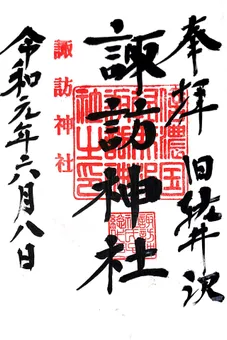 奉拝
旧軽井沢
諏訪神社
諏訪神社
令和元年六月八日